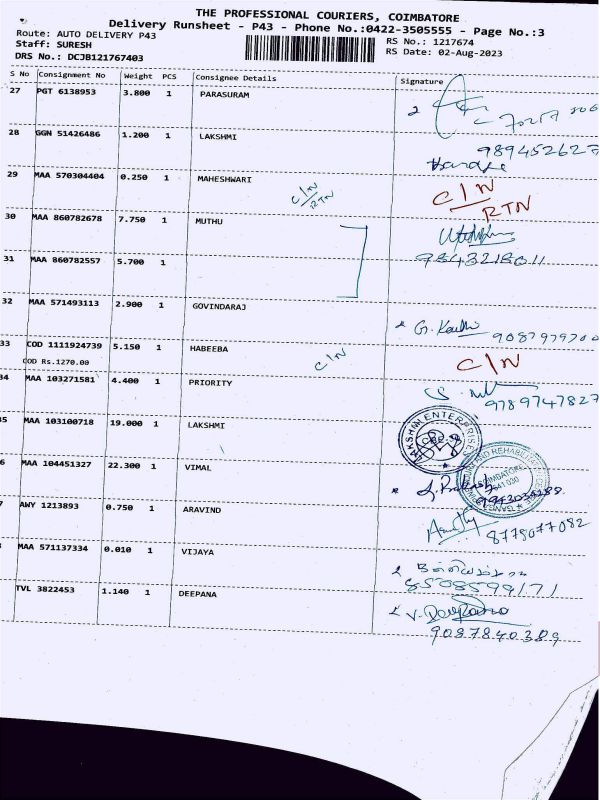 THE PROFESSIONAL COURIERS, COIMBATORE
Delivery Runsheet - P43 - Phone No.:0422-3505555 - Page No.:3
Route: AUTO DELIVERY P43
RS No.: 1217674
Staff: SURESH
RS Date: 02-Aug-2023
DRS No.: DCJB121767403
S No Consignment No Weight PCS Consignee Details Signature
27 PGT 6138953 3.800 1 PARASURAM
28 GGN 51426486 1.200 1 LAKSHMI 989452627
29 MAA 570304404 0.250 1 MAHESHWARI C/N RTN C/N RTN
30 MAA 860782678 7.750 1 MUTHU
31 MAA 860782557 5.700 1 9843218011
32 MAA 571493113 2.900 1 GOVINDARAJ G. 9087979700
33 COD 1111924739 5.150 1 HABEEBA C/N C/N
COD Rs.1270.00
34 MAA 103271581 4.400 1 PRIORITY 9789747827
5 MAA 103100718 19.000 1 LAKSHMI LAKSHMI ENTERPRISES
6 MAA 104451327 22.300 1 VIMAL COIMBATORE
7 AWY 1213893 0.750 1 ARAVIND 8778077082
MAA 571137334 0.010 1 VIJAYA 8508599171
TVL 3822453 1.140 1 DEEPANA V. Deepana
9087840389